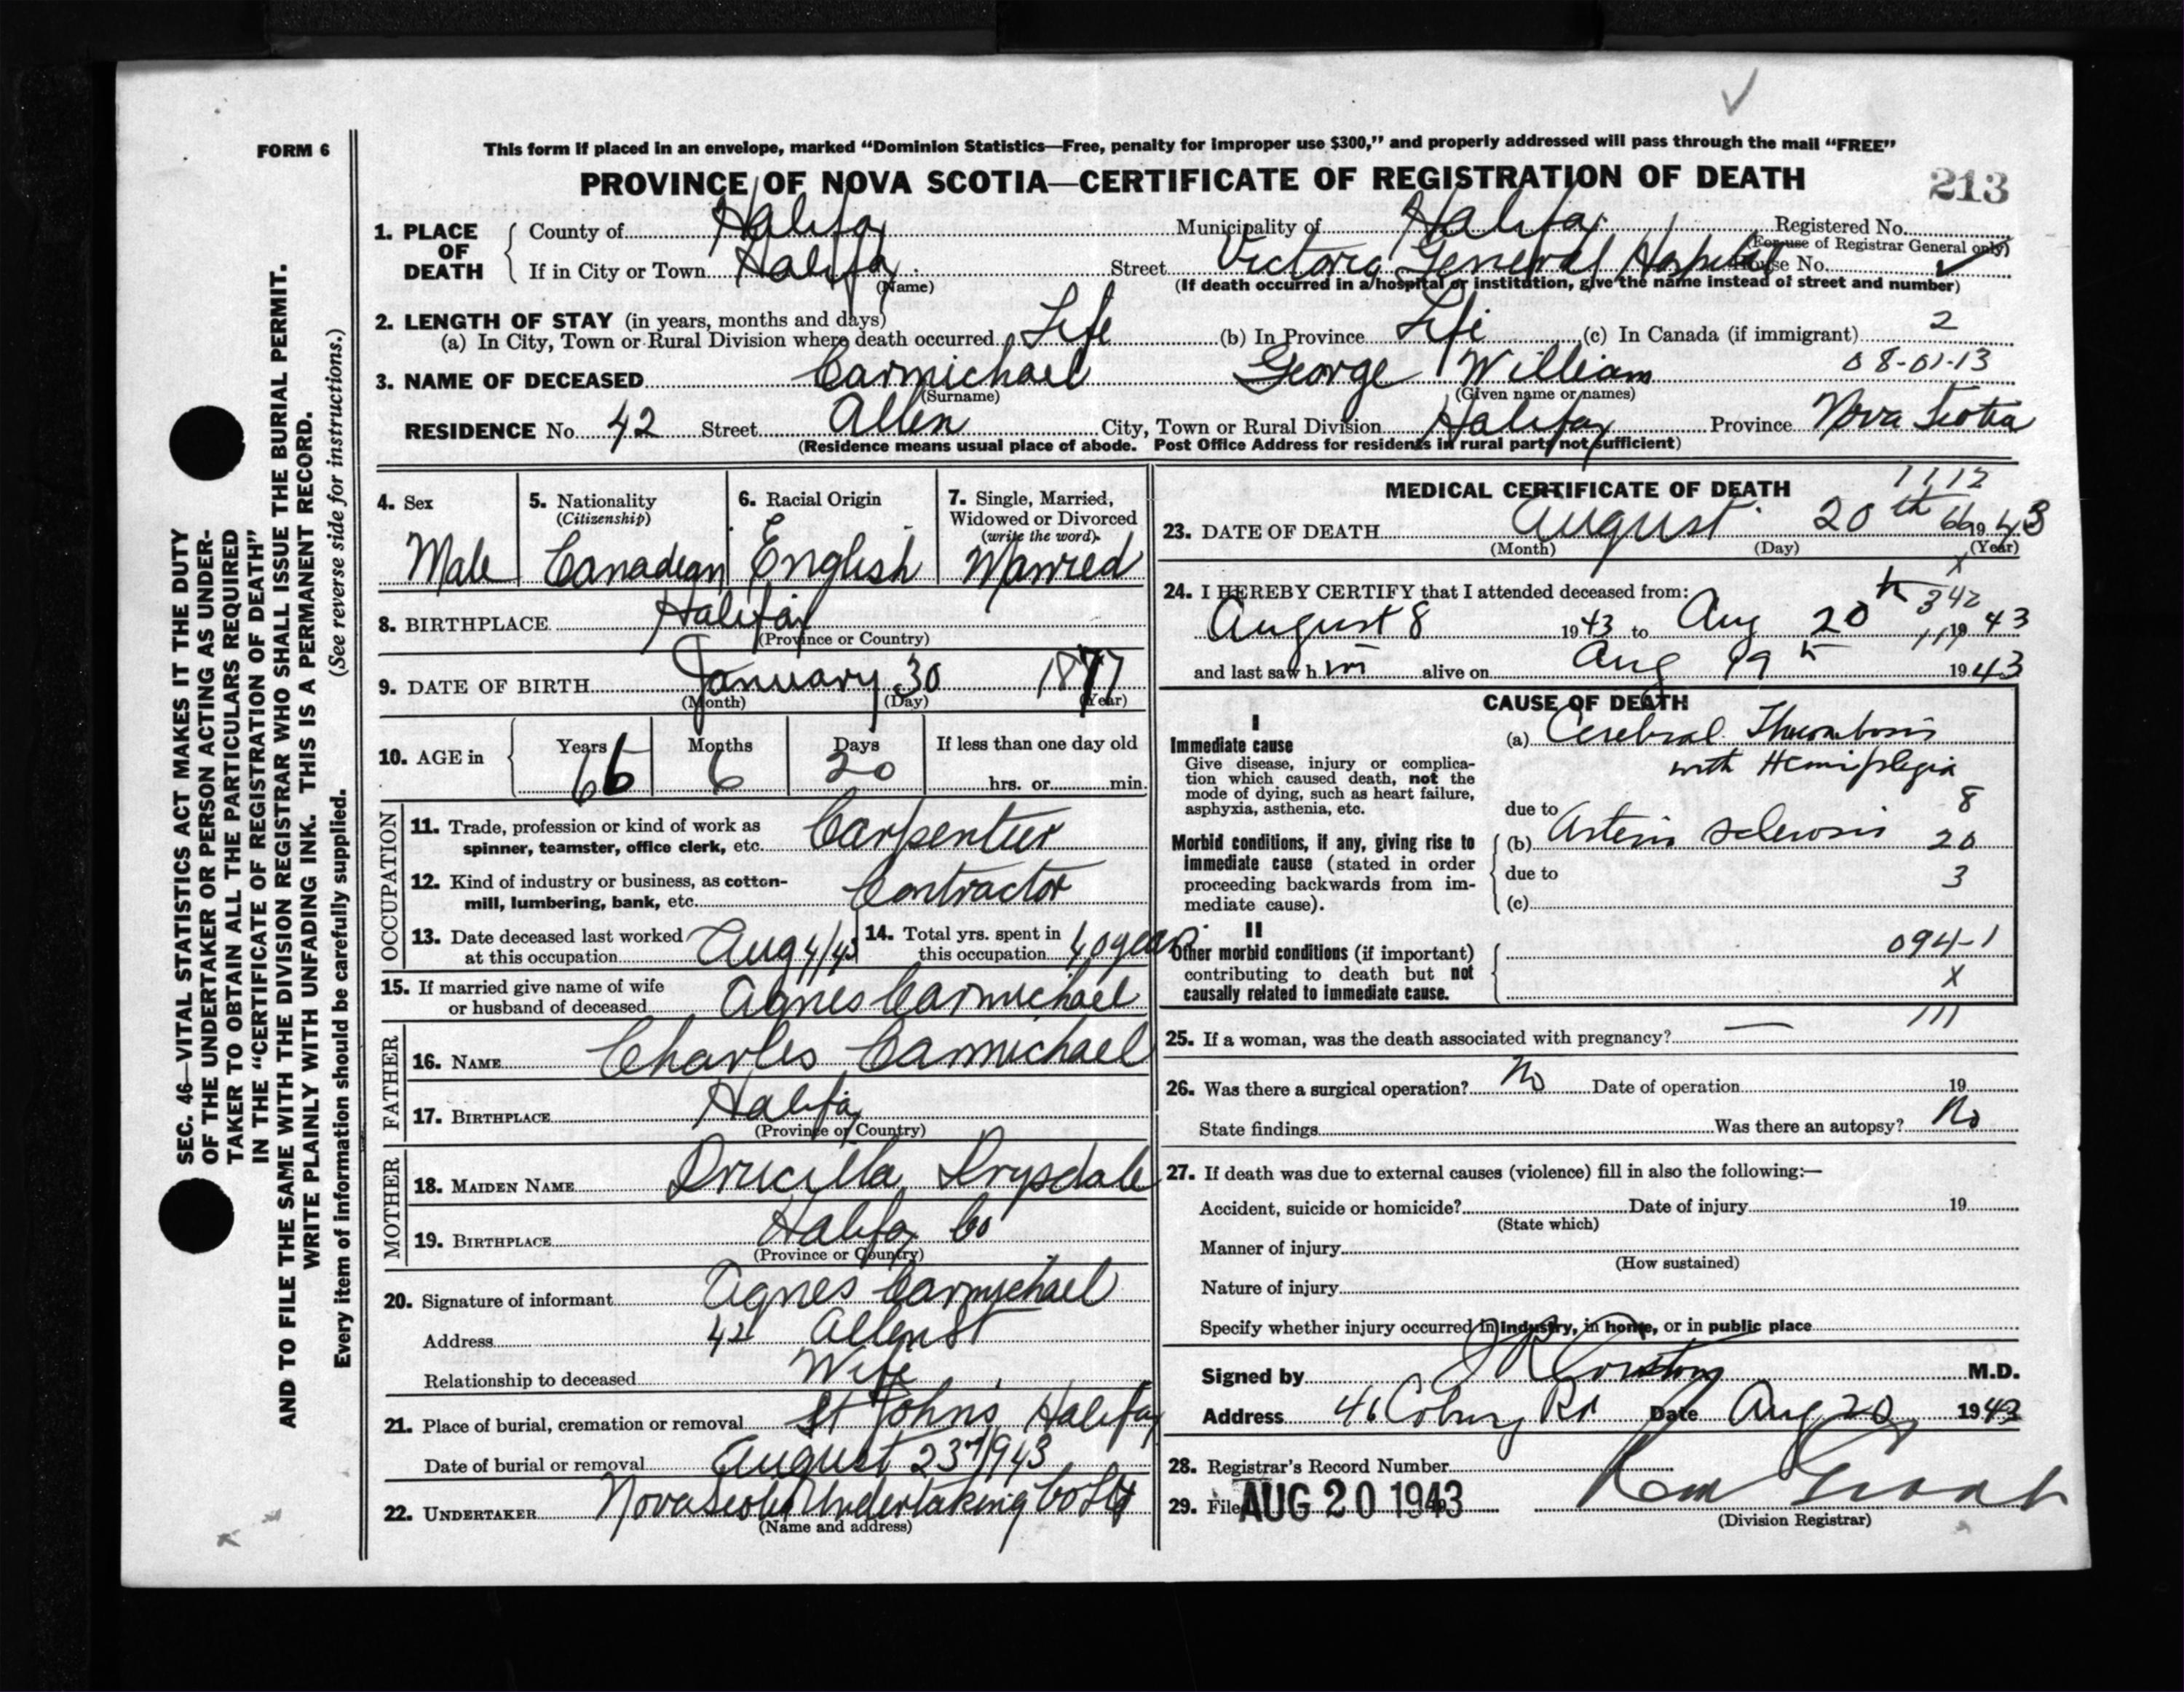 FORM 6
This form if placed in an envelope, marked “Dominion Statistics—Free, penalty for improper use $300,” and properly addressed will pass through the mail “FREE”
PROVINCE OF NOVA SCOTIA—CERTIFICATE OF REGISTRATION OF DEATH
213
1. PLACE OF DEATH
County of Halifax Municipality of Halifax Registered No.
(For use of Registrar General only)
If in City or Town Halifax Street Victoria General Hospital House No.
(Name) (If death occurred in a hospital or institution, give the name instead of street and number)
2. LENGTH OF STAY (in years, months and days)
(a) In City, Town or Rural Division where death occurred Life (b) In Province Life (c) In Canada (if immigrant) 2
3. NAME OF DECEASED Carmichael George William 08-01-13
(Surname) (Given name or names)
RESIDENCE No. 42 Street Allen City, Town or Rural Division Halifax Province Nova Scotia
(Residence means usual place of abode. Post Office Address for residents in rural parts not sufficient)
4. Sex
Male
5. Nationality
(Citizenship)
Canadian
6. Racial Origin
English
7. Single, Married,
Widowed or Divorced
(write the word)
Married
8. BIRTHPLACE Halifax
(Province or Country)
9. DATE OF BIRTH January 30 1877
(Month) (Day) (Year)
10. AGE in
Years Months Days If less than one day old
66 6 20 hrs. or min.
OCCUPATION
11. Trade, profession or kind of work as
spinner, teamster, office clerk, etc. Carpenter
12. Kind of industry or business, as cotton-
mill, lumbering, bank, etc. Contractor
13. Date deceased last worked
at this occupation Aug 4/43
14. Total yrs. spent in
this occupation 40 years
15. If married give name of wife
or husband of deceased Agnes Carmichael
FATHER
16. NAME Charles Carmichael
17. BIRTHPLACE Halifax
(Province or Country)
MOTHER
18. MAIDEN NAME Drucilla Drysdale
19. BIRTHPLACE Halifax Co
(Province or Country)
20. Signature of informant Agnes Carmichael
Address 42 Allen St
Relationship to deceased Wife
21. Place of burial, cremation or removal St Johns, Halifax
Date of burial or removal August 23 1943
22. UNDERTAKER Nova Scotia Undertaking Co Ltd
(Name and address)
MEDICAL CERTIFICATE OF DEATH
1112
23. DATE OF DEATH August 20th 66 1943
(Month) (Day) (Year)
X
24. I HEREBY CERTIFY that I attended deceased from: 342
August 8 1943 to Aug 20th 1943
111
and last saw him alive on Aug 19th 1943
CAUSE OF DEATH
I
Immediate cause
Give disease, injury or complica-
tion which caused death, not the
mode of dying, such as heart failure,
asphyxia, asthenia, etc.
(a) Cerebral Thrombosis
with Hemiplegia
8
due to
Morbid conditions, if any, giving rise to
immediate cause (stated in order
proceeding backwards from im-
mediate cause).
(b) Arterio sclerosis 20
due to 3
(c)
II
Other morbid conditions (if important)
contributing to death but not
causally related to immediate cause.
094-1
X
111
25. If a woman, was the death associated with pregnancy? —
26. Was there a surgical operation? No Date of operation 19
State findings Was there an autopsy? No
27. If death was due to external causes (violence) fill in also the following:—
Accident, suicide or homicide? Date of injury 19
(State which)
Manner of injury
(How sustained)
Nature of injury
Specify whether injury occurred in industry, in home, or in public place
Signed by M.D.
Address 46 Coburg Rd Date Aug 20 1943
28. Registrar's Record Number
29. File AUG 20 1943
(Division Registrar)
SEC. 46—VITAL STATISTICS ACT MAKES IT THE DUTY
OF THE UNDERTAKER OR PERSON ACTING AS UNDER-
TAKER TO OBTAIN ALL THE PARTICULARS REQUIRED
IN THE “CERTIFICATE OF REGISTRATION OF DEATH”
AND TO FILE THE SAME WITH THE DIVISION REGISTRAR WHO SHALL ISSUE THE BURIAL PERMIT.
WRITE PLAINLY WITH UNFADING INK. THIS IS A PERMANENT RECORD.
Every item of information should be carefully supplied. (See reverse side for instructions.)